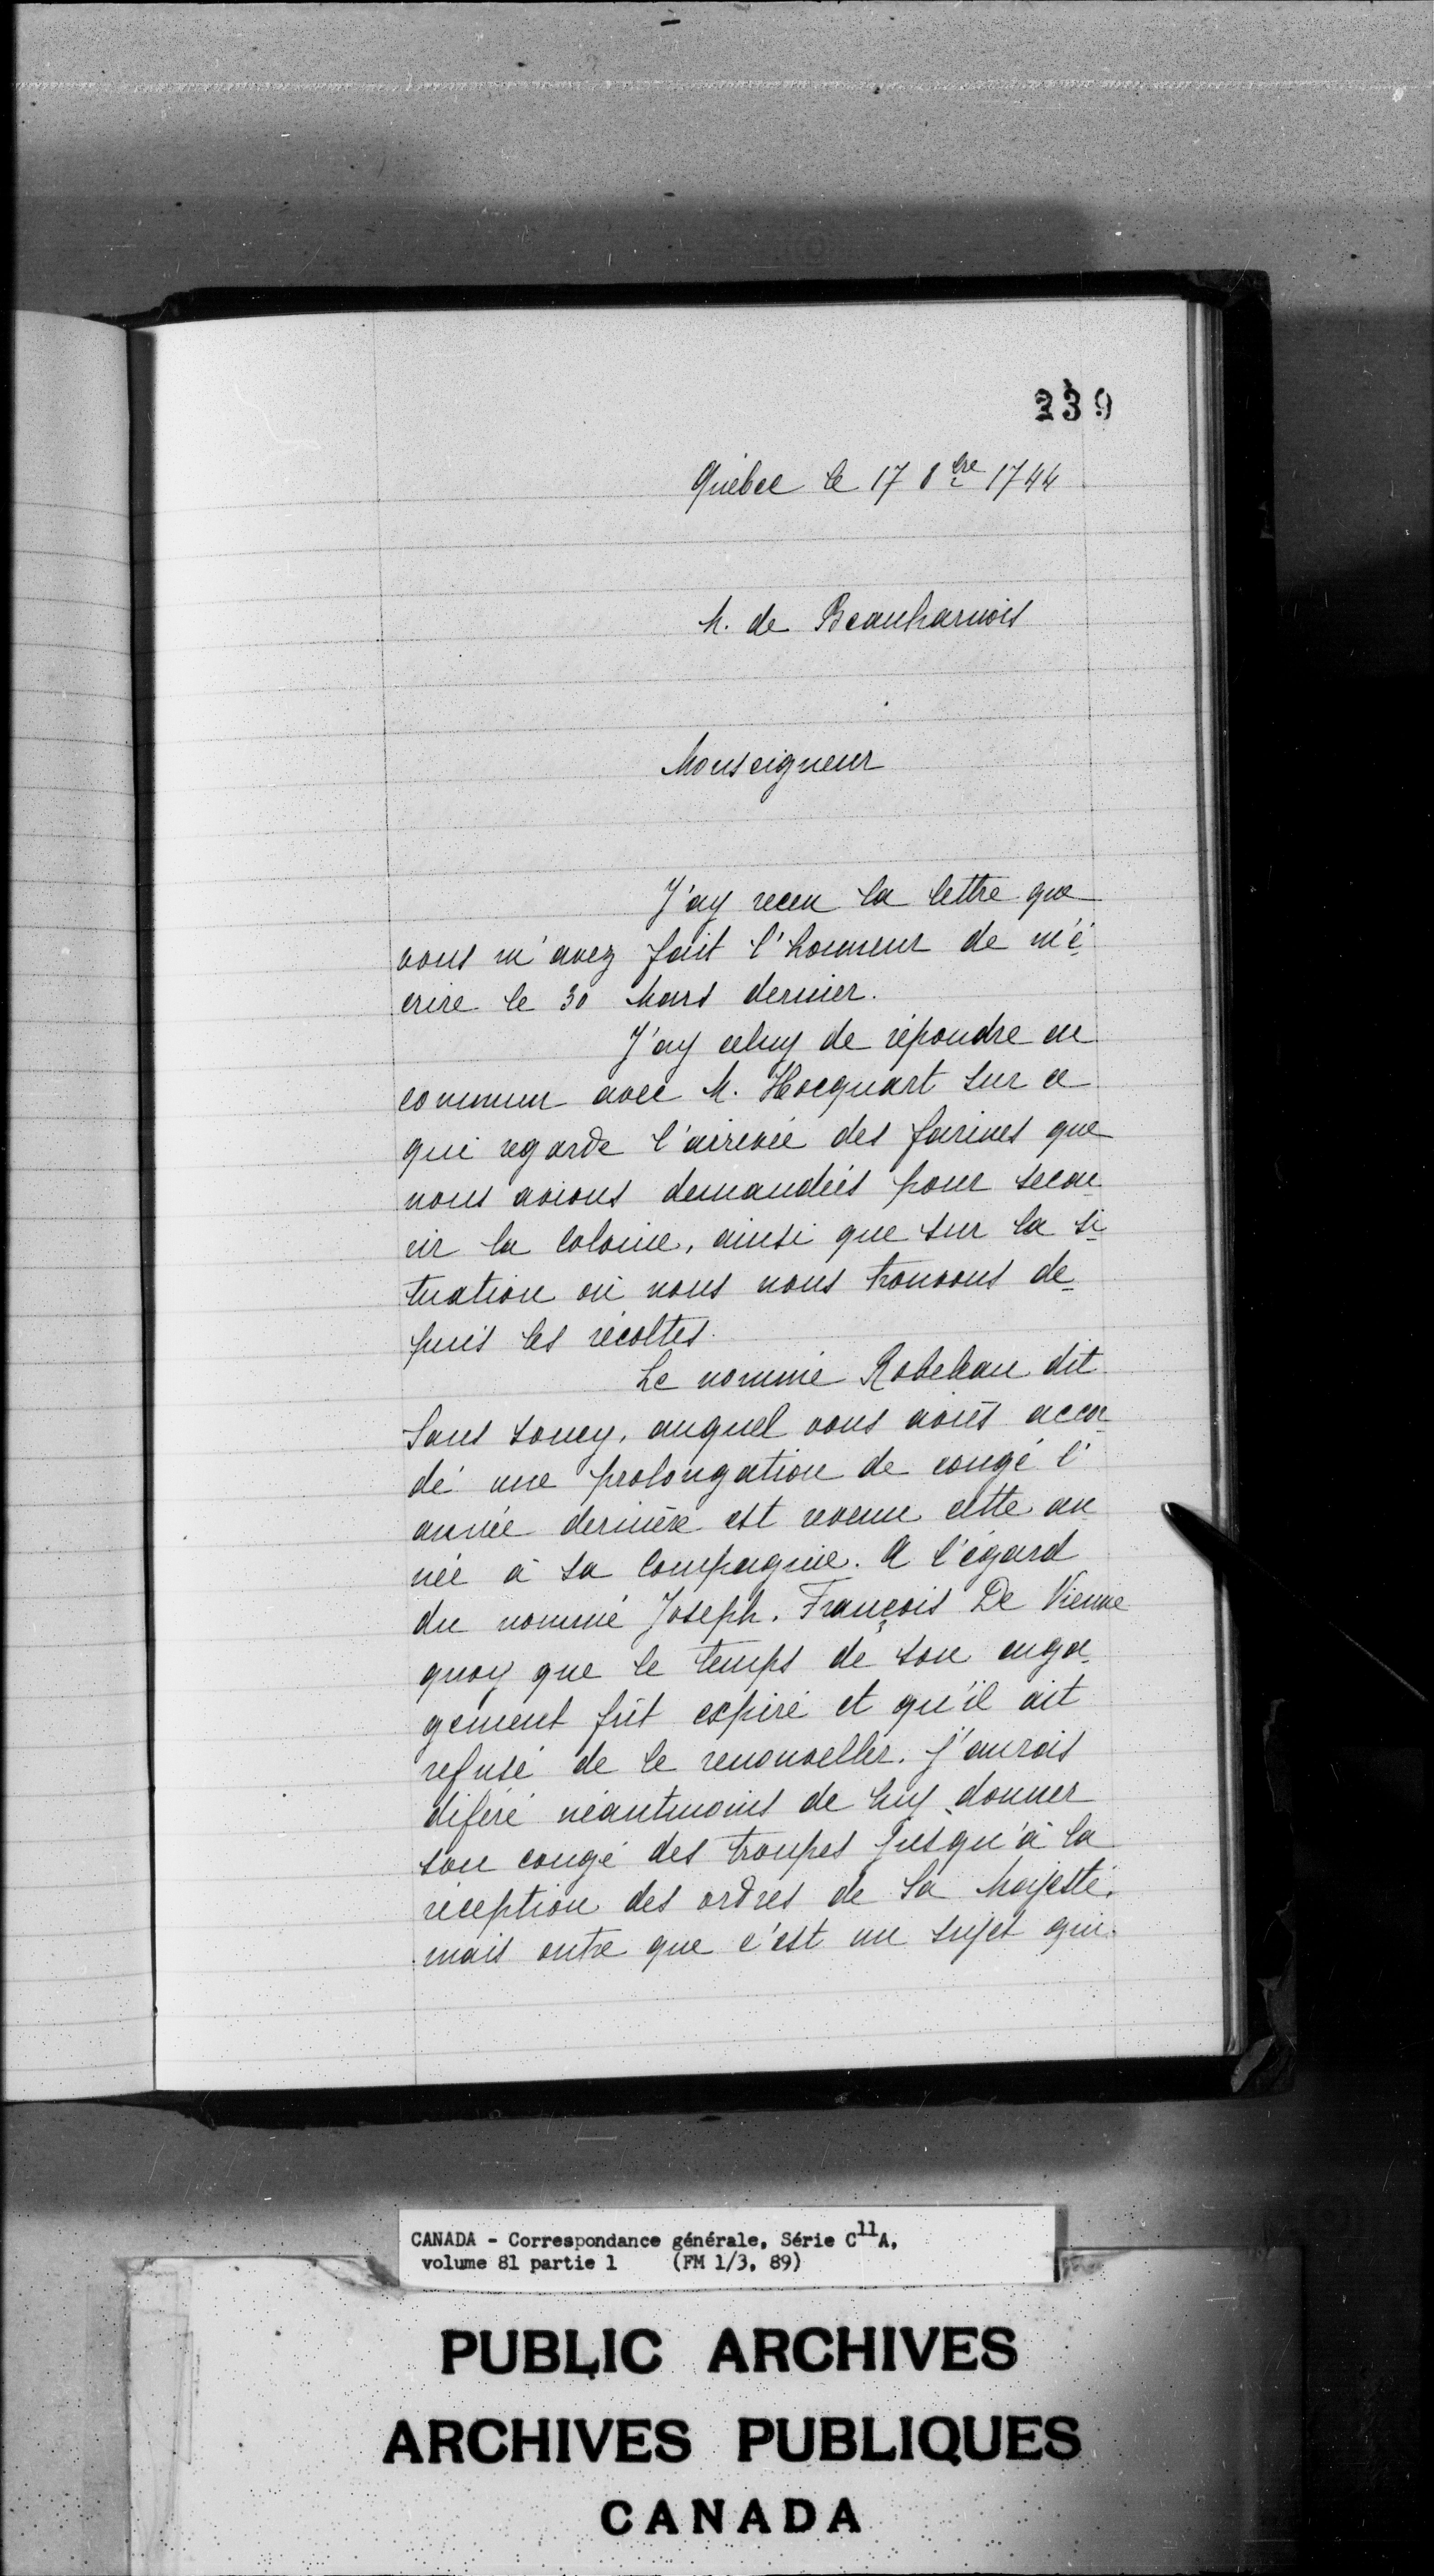 239
Québec le 17 8bre 1744
M. de Beauharnois
Monseigneur
J'ay receu la lettre que
vous m'avez fait l'honneur de m'é
crire le 30 Mars dernier.
J'ay celuy de répondre en
commun avec M. Hocquart sur ce
qui regarde l'arrivée des farines que
nous avions demandées pour secou
rir la Colonie, ainsi que sur la si
tuation où nous nous trouvons de
puis les récoltes.
Le nommé Robebeau dit
Sans soucy, auquel vous aviés accor
dé une prolongation de congé l'
année dernière est revenu cette an
née à sa Compagnie. A l'égard
du nommé Joseph. François De Vienne
quoy que le temps de son enga
gement fût expiré et qu'il ait
refusé de le renouveller. j'aurois
diféré néantmoins de luy donner
son congé des troupes jusqu'à la
réception des ordres de Sa Majesté.
mais outre que c'est un sujet qui
CANADA - Correspondance générale, Série C11A,
volume 81 partie 1 (FM 1/3, 89)
PUBLIC ARCHIVES
ARCHIVES PUBLIQUES
CANADA